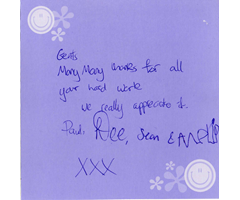 Gents
Many Many thanks for all
your hard work
we really appreciate it.
Paul, Dee, Sean &
XXX